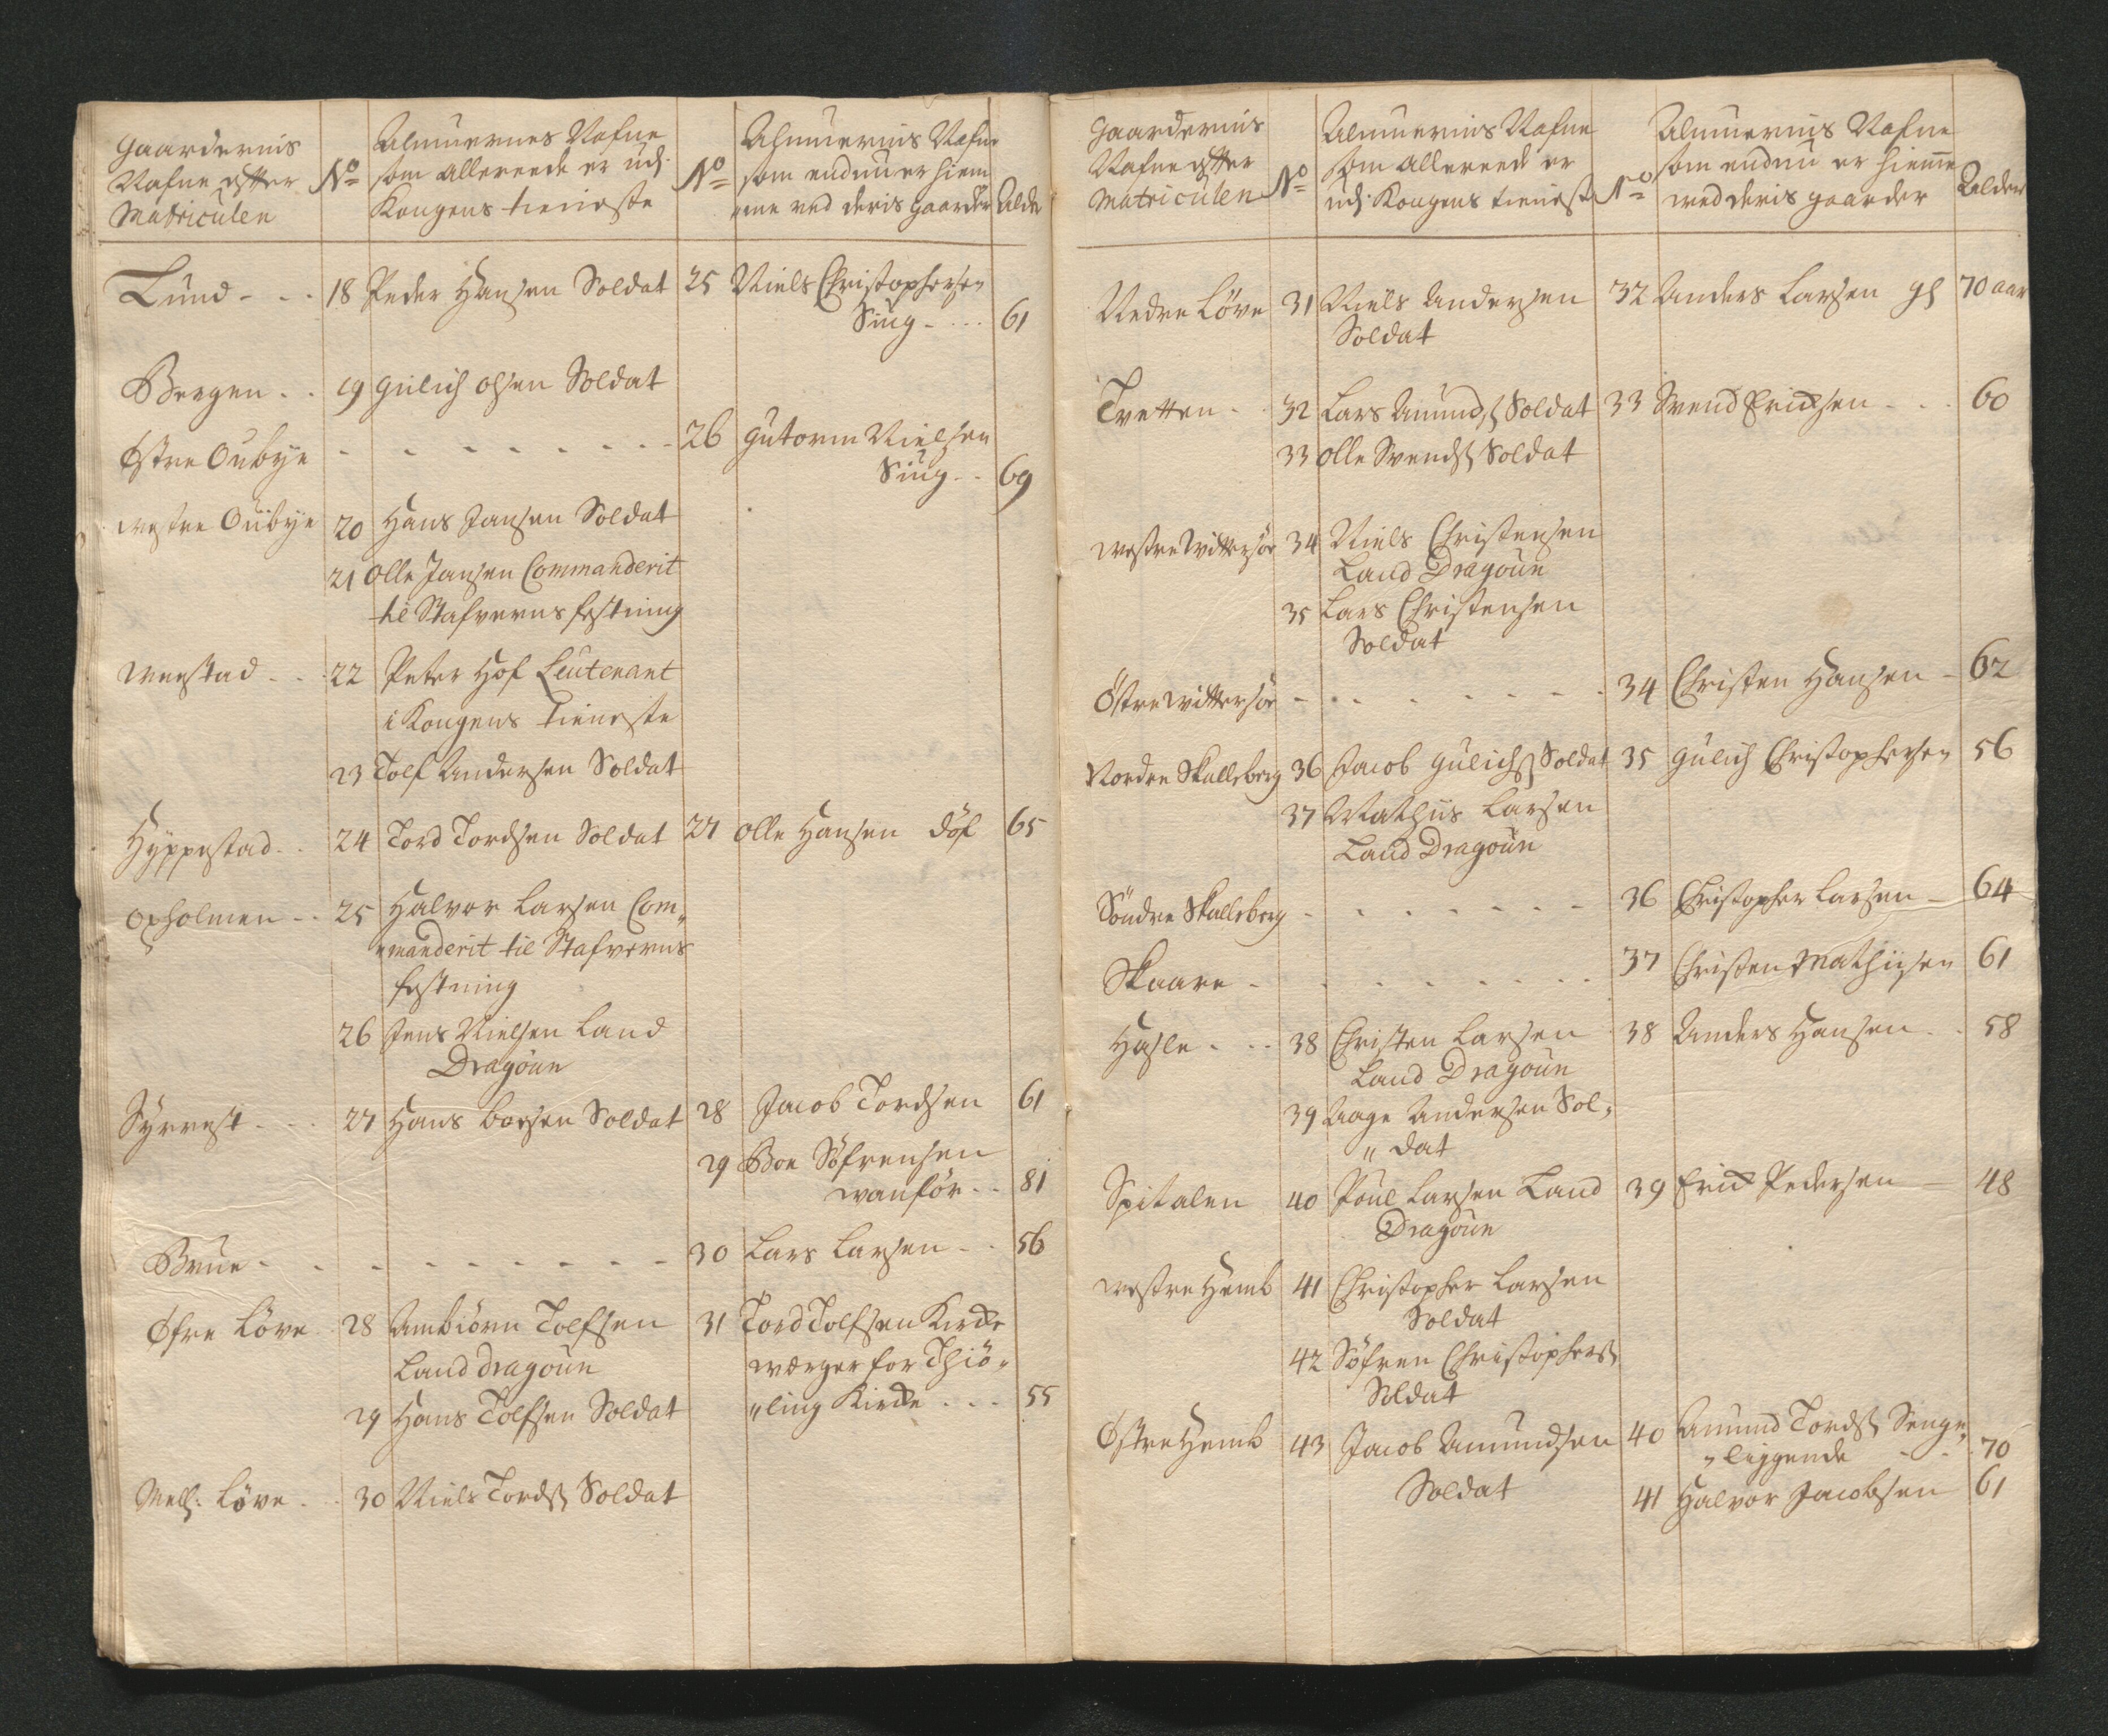 Gaardernis
Nafne efter
Matriculen
No
Almuernes Nafne
som allereede er udj
Kongens tieneste
No
Almuernis Nafne
som endnu er hiem
„me ved deris gaarder
Alder
Lund - - - 18 Peder Hansen Soldat 25 Niels Christophersen
Siug - - - 61
Bergen - - 19 Gulich Olsen Soldat
Østre Oubÿe - - - - - - - 26 Gutorm Nielsen
Siug - - 69
westre Oubÿe 20 Hans Jansen Soldat
21 Olle Jansen Commanderit
til Stafverns festning
weestad - - 22 Peter Hof Leutenant
i Kongens Tieneste
23 Tolf Andersen Soldat
Hÿppestad - - 24 Tord Tordsen Soldat 27 Olle Hansen døf 65
Oxholmen - - 25 Halvor Larsen Com„
„manderit til Stafverns
festning
26 Jens Nielsen Land
Dragoun
Sÿrrest - - - 27 Hans Boesen Soldat 28 Jacob Tordsen 61
29 Boe Søfrensen
wanför - - 81
Brue - - - - - - - - - 30 Lars Larsen - - 56
Øfre Løve 28 Ambiörn Tolfsen 31 Tord Tolfsen Kircke
Land dragoun
værger for Thiö„
29 Hans Tolfsen Soldat
„ling Kircke - - - 55
Mell: Løve - - 30 Niels Tords Soldat
Gaardernis
Nafne efter
Matriculen
No
Almuernis Nafne
som allereede er
udj Kongens tieneste
No
Almuernis Nafne
som endnu er hieme
ved deris gaarder
Alder
Nedre Løve 31 Niels Andersen 32 Anders Larsen 70 aar
Soldat
Tvetten - - 32 Lars Amunds Soldat 33 Svend Ericksen - - - 60
33 Olle Svends Soldat
westre Wittersøe 34 Niels Christensen
Land Dragoun
35 Lars Christensen
Soldat
Östre wittersøe - - - - - - - 34 Christen Hansen - 62
Nordre Skalleberg 36 Jacob Gulichs Soldat 35 Gulich Christophersen 56
37 Mathiis Larsen
Land Dragoun
Söndre Skalleberg - - - - - - - 36 Christopher Larsen - 64
Skaare - - - - - - - - 37 Christen Mathiisen 61
Hasle - - - 38 Christen Larsen 38 Anders Hansen - - 58
Land Dragoun
39 Aage Andersen Sol„
„dat
Spitalen 40 Poul Larsen Land 39 Erick Pedersen - 48
Dragoun
westre Hemb 41 Christopher Larsen
Soldat
42 Söfren Christophers
Soldat
Østre Hemb 43 Jacob Amundsen 40 Amund Tords Senge„
„liggende - - 70
Soldat 41 Halvor Jacobsen 61